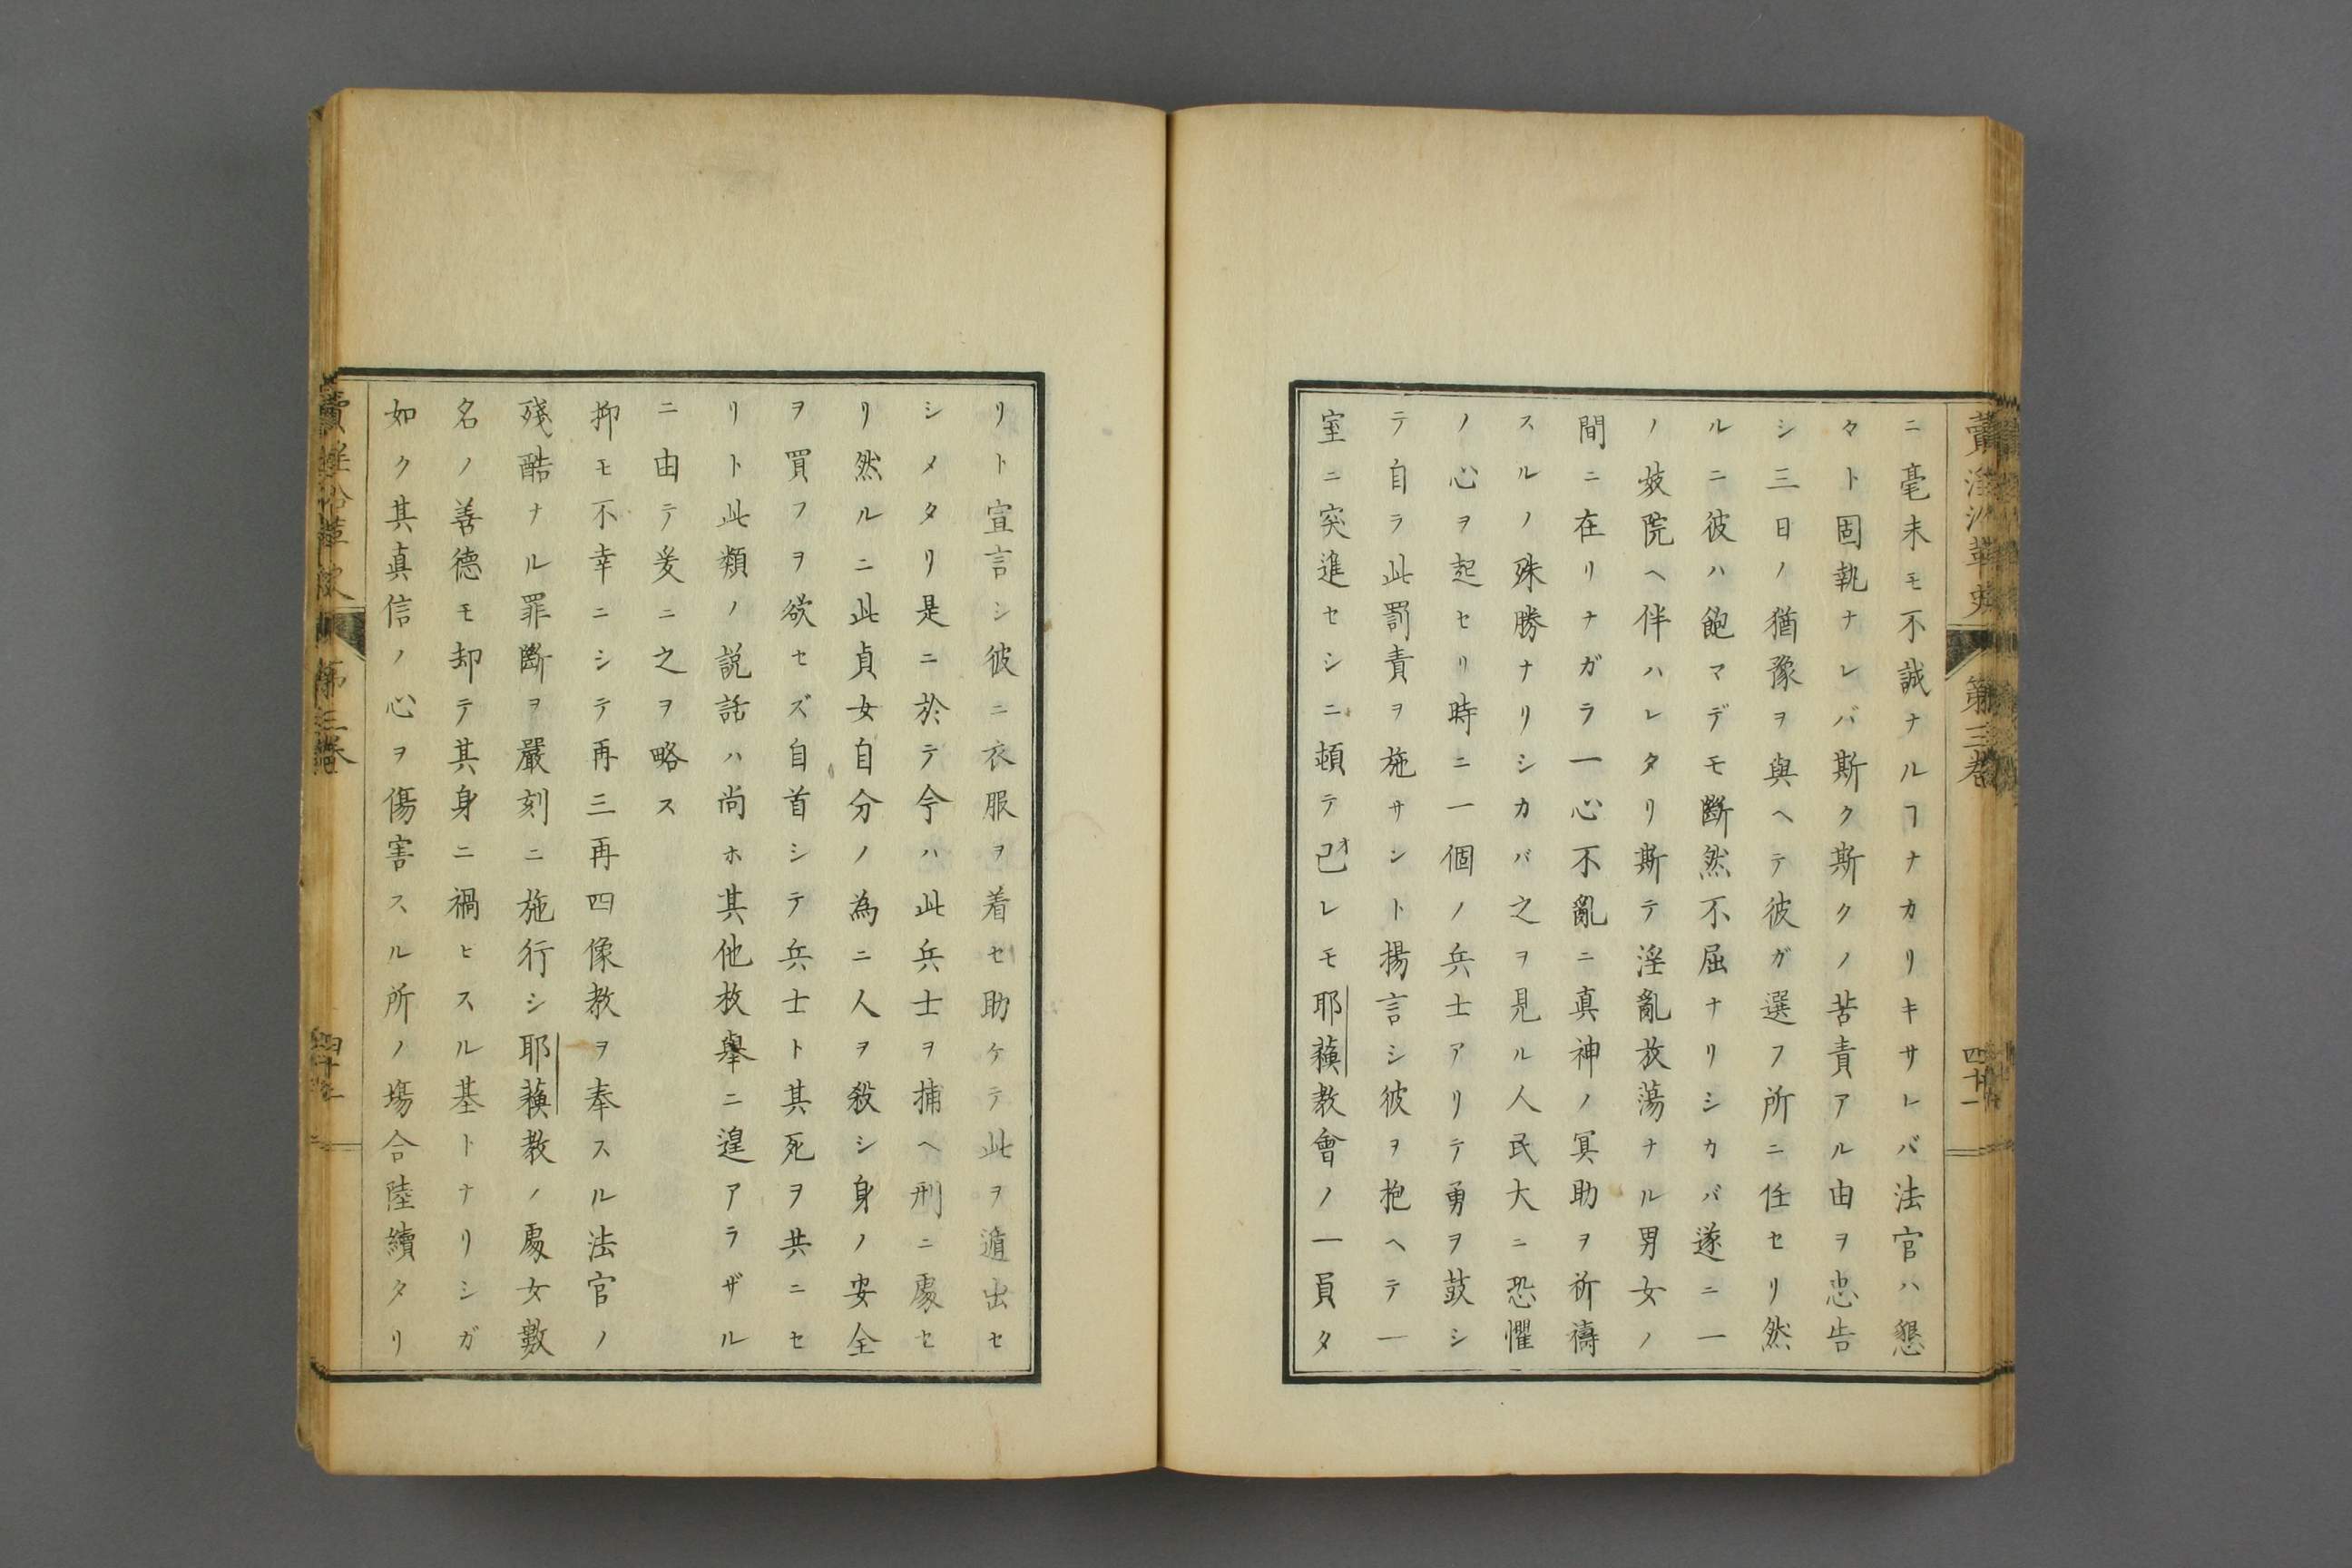 賣淫沿革史
第三卷
四十一
ニ毫末モ不誠ナルヿナカリキサレバ法官ハ懇
々ト固執ナレバ斯ク斯クノ苦責アル由ヲ忠告
シ三日ノ猶豫ヲ與ヘテ彼ガ選フ所ニ任セリ然
ルニ彼ハ飽マデモ斷然不屈ナリシカバ遂ニ一
ノ妓院ヘ伴ハレタリ斯テ淫亂放蕩ナル男女ノ
間ニ在リナガラ一心不亂ニ真神ノ冥助ヲ祈禱
スルノ殊勝ナリシカバ之ヲ見ル人民大ニ恐懼
ノ心ヲ起セリ時ニ一個ノ兵士アリテ勇ヲ鼓シ
テ自ラ此罰責ヲ施サント揚言シ彼ヲ抱ヘテ一
室ニ突進セシニ頓テ己レモ耶蘓教會ノ一員タ
リト宣言シ彼ニ衣服ヲ着セ助ケテ此ヲ遁出セ
シメタリ是ニ於テ今ハ此兵士ヲ捕ヘ刑ニ處セ
リ然ルニ此貞女自分ノ為ニ人ヲ殺シ身ノ安全
ヲ買フヲ欲セズ自首シテ兵士ト其死ヲ共ニセ
リト此類ノ説話ハ尚ホ其他枚擧ニ遑アラザル
ニ由テ爰ニ之ヲ略ス
抑モ不幸ニシテ再三再四像教ヲ奉スル法官ノ
殘酷ナル罪斷ヲ嚴刻ニ施行シ耶蘓教ノ處女數
名ノ善德モ却テ其身ニ禍ヒスル基トナリシガ
如ク其真信ノ心ヲ傷害スル所ノ塲合陸續タリ
賣淫沿革史
第三卷